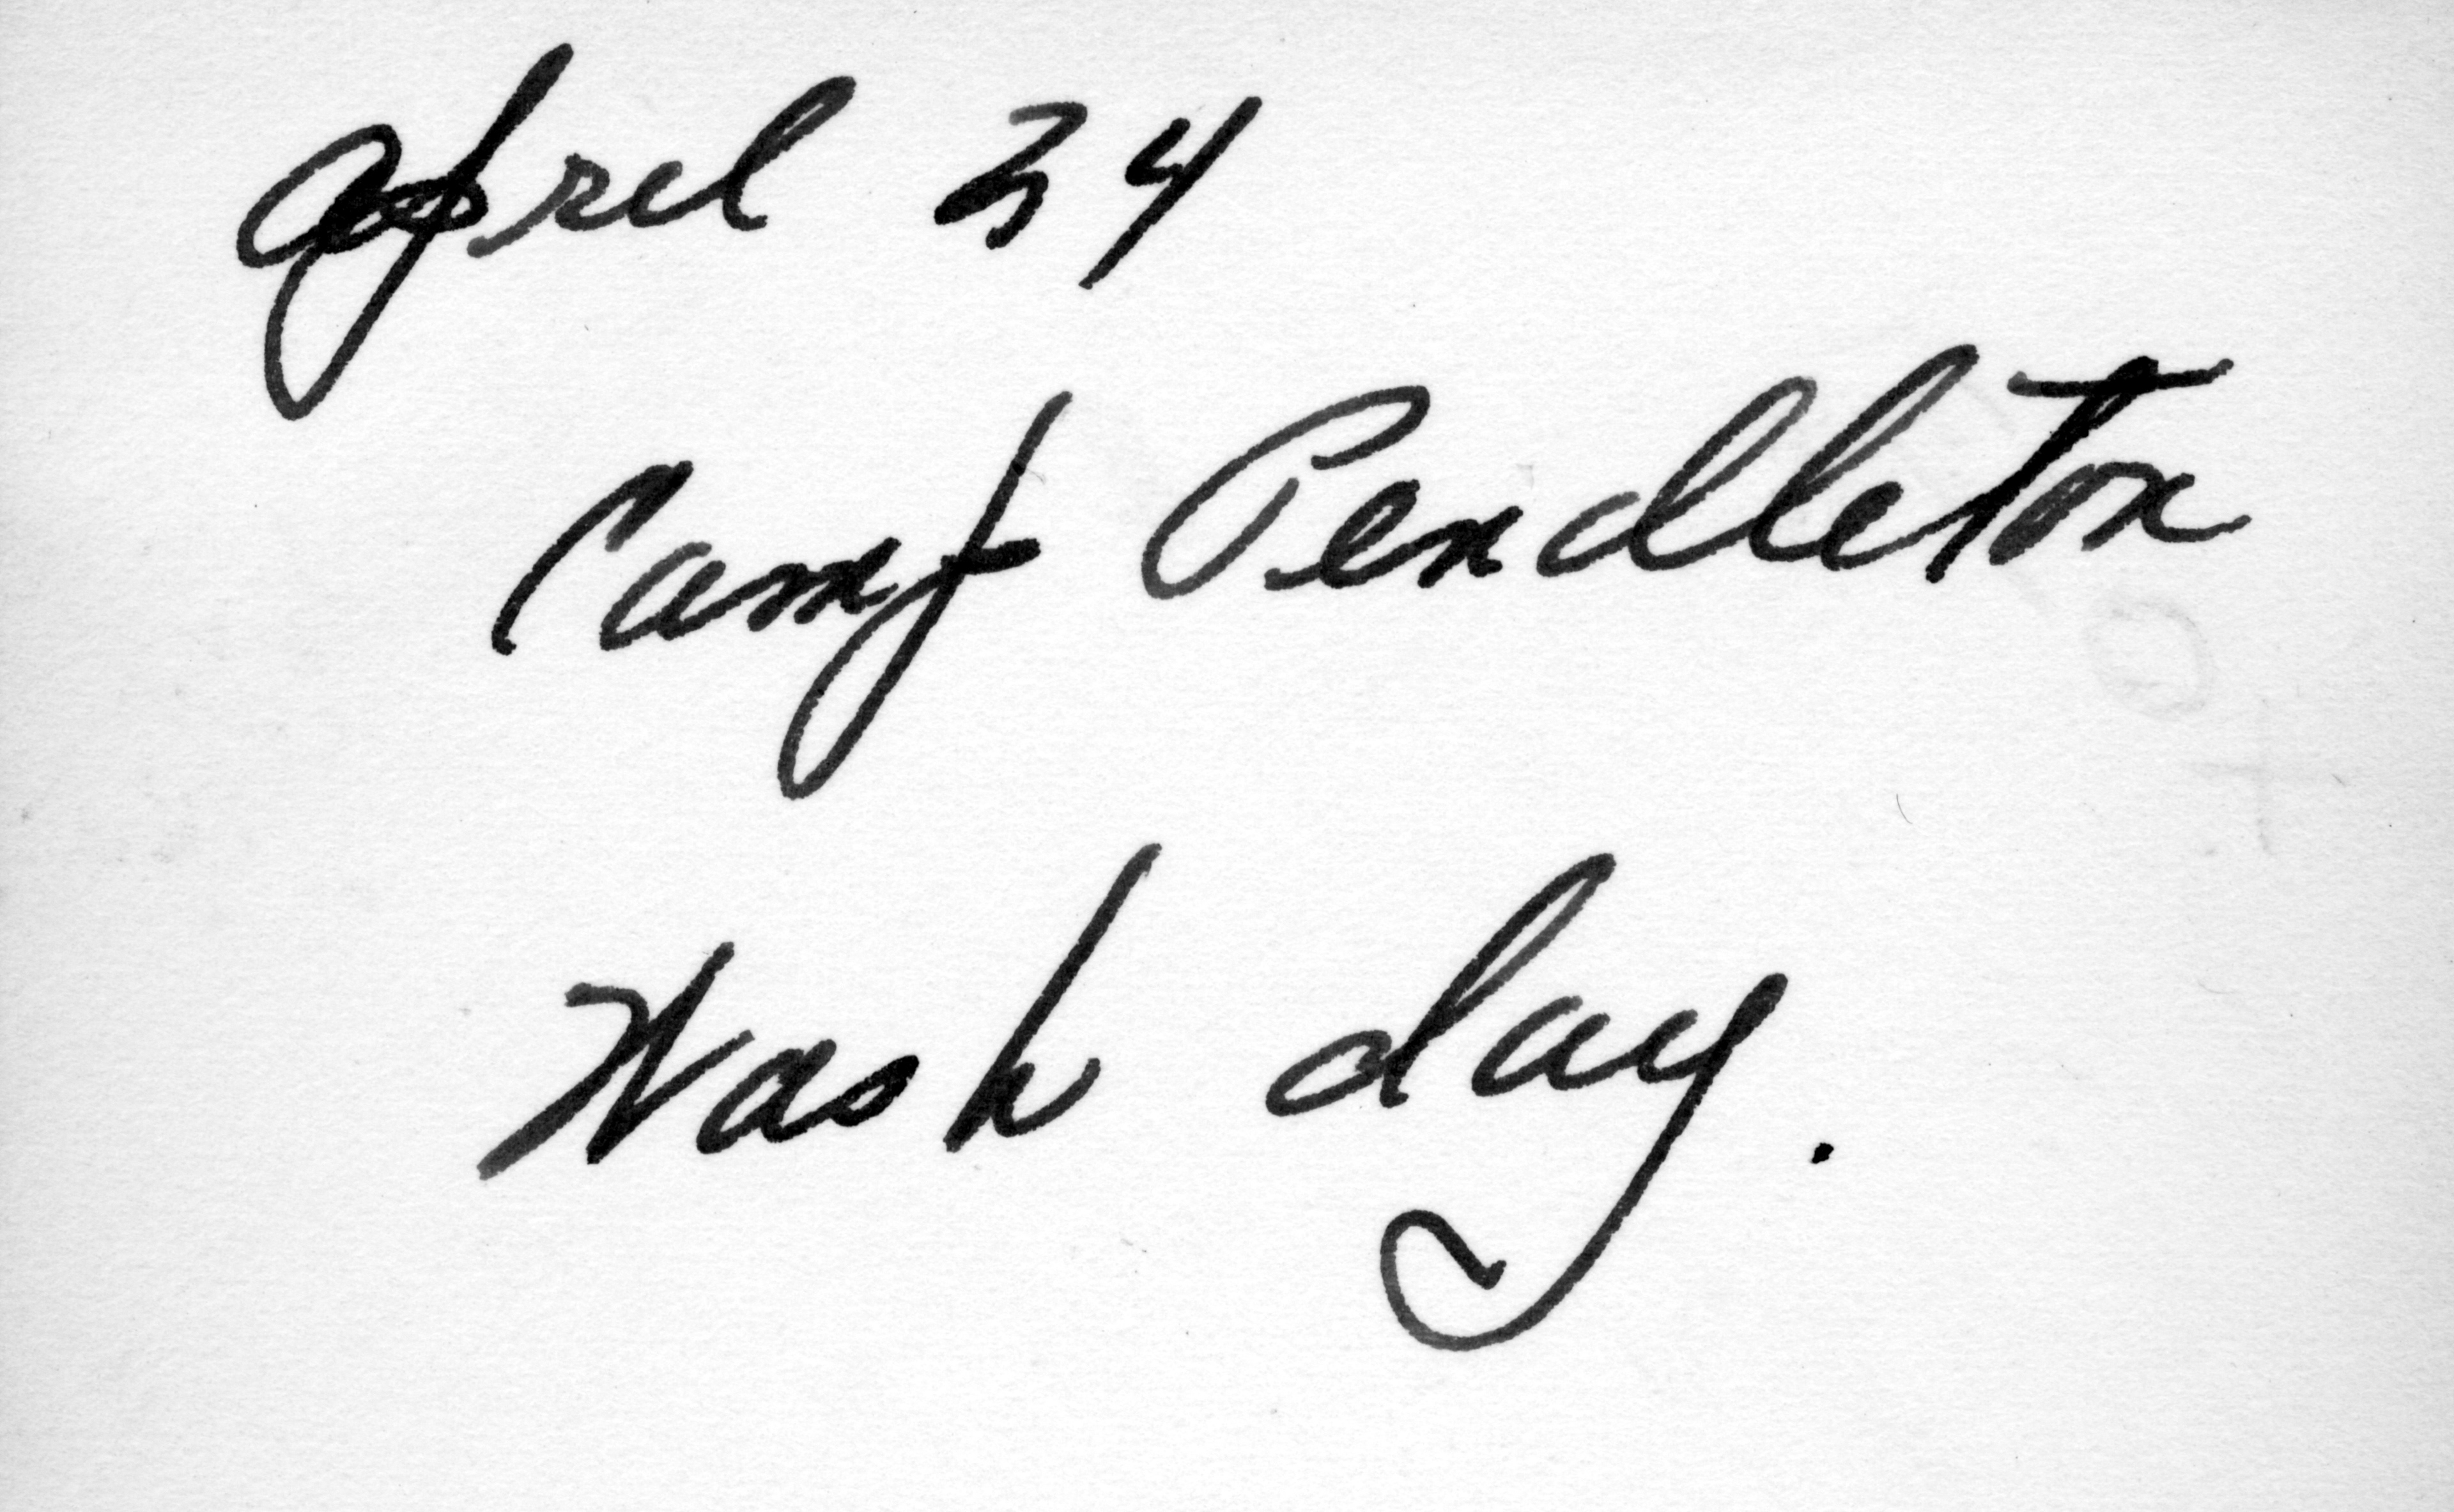 April 24
Camp Pendleton
Wash day.